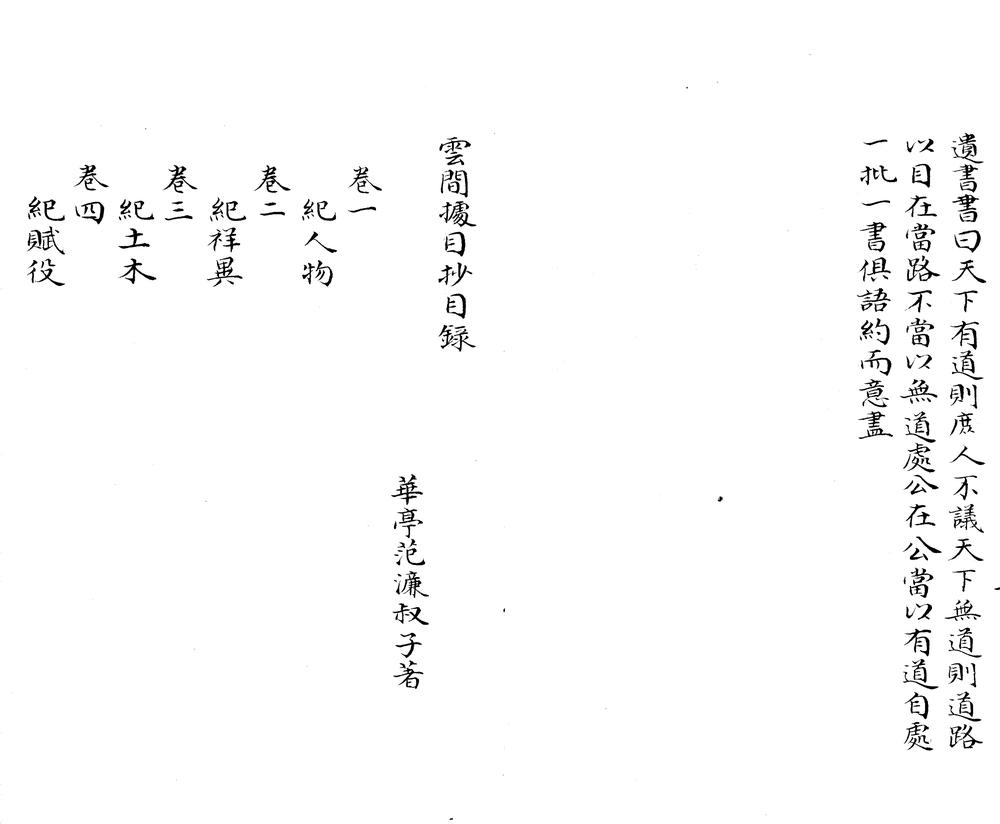 遺書書曰天下有道則庶人不議天下無道則道路
以目在當路不當以無道處公在公當以有道自處
一批一書俱語約而意盡
雲間據目抄目錄
華亭范濂叔子著
卷一
紀人物
卷二
紀祥異
卷三
紀土木
卷四
紀賦役